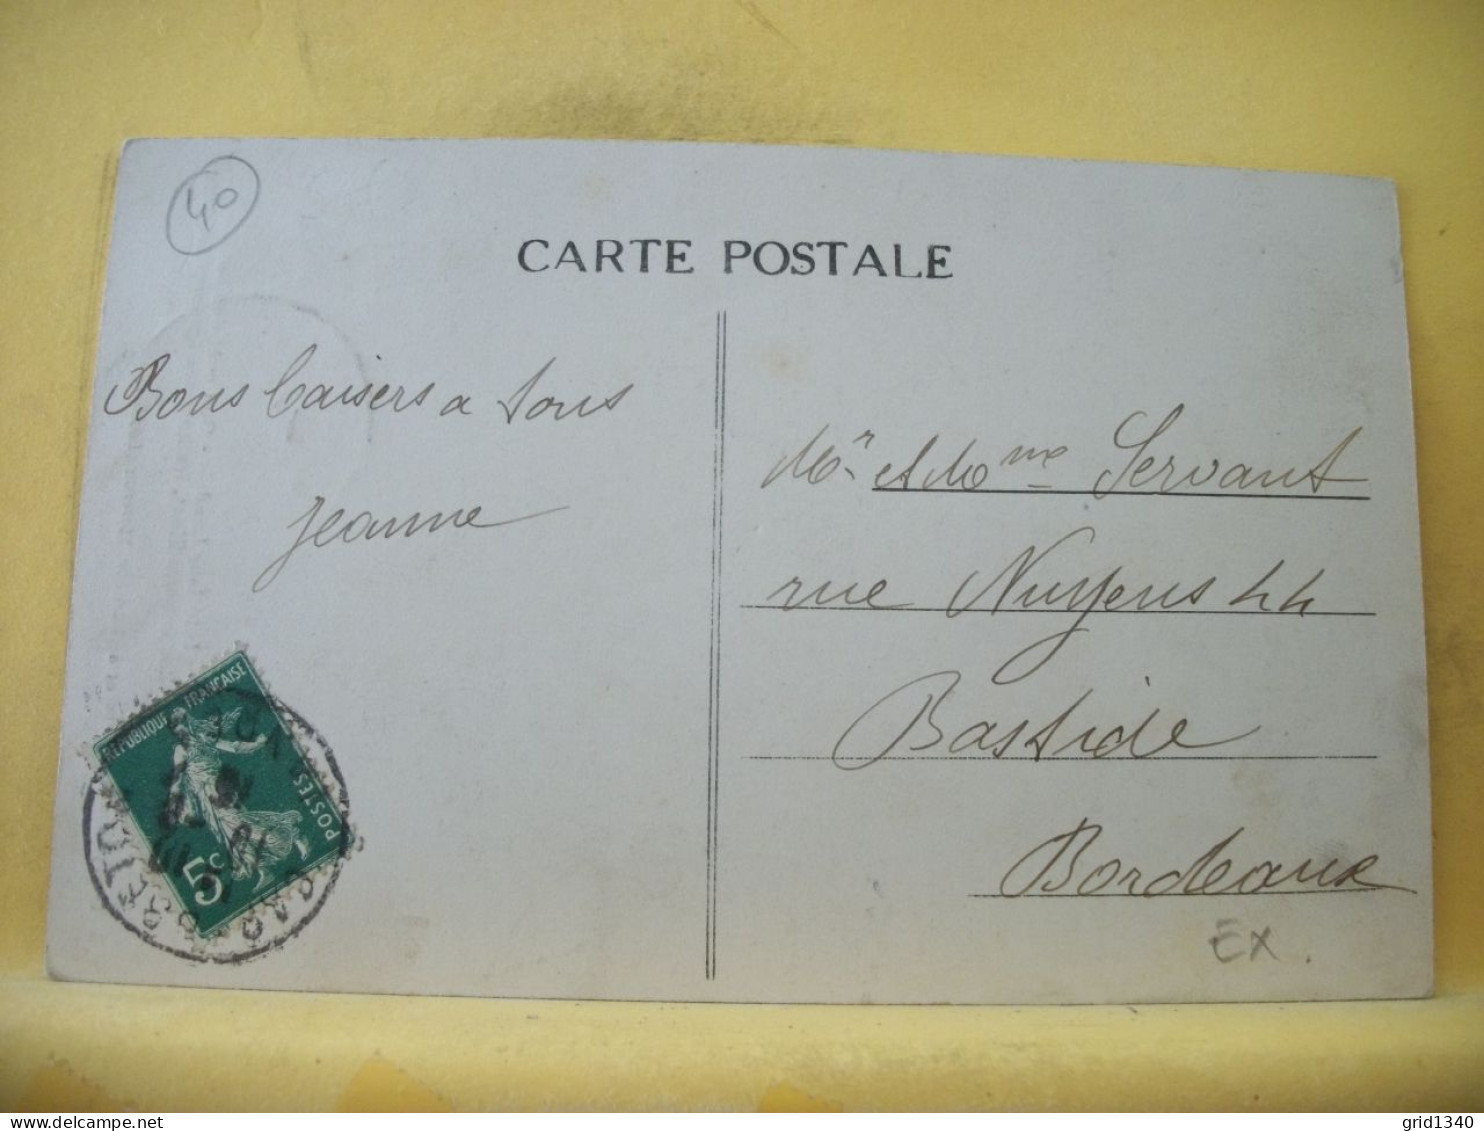 40
CARTE POSTALE
Bons baisers a tous
Jeanne
Mr et Mme Servant
rue Nuyens 44
Bastide
Bordeaux
EX.
RÉPUBLIQUE FRANÇAISE
POSTES
5c
grid1340